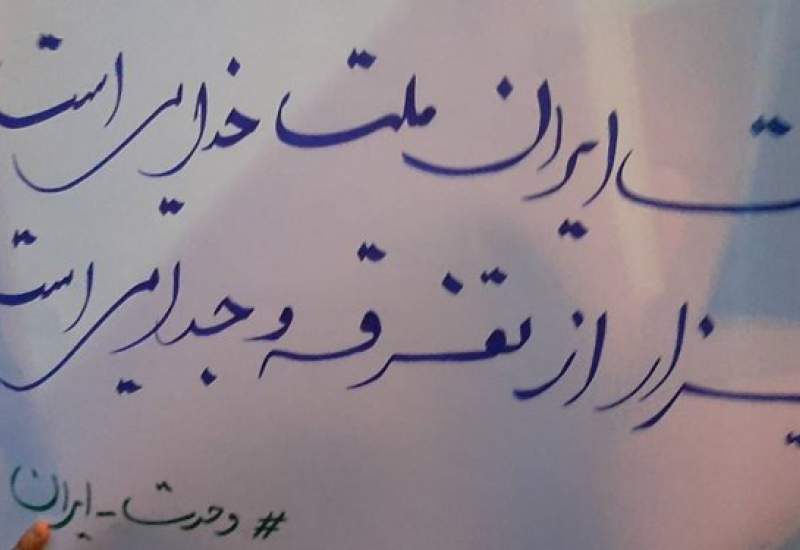 ایران ملت خدایی است
از تفرقه و جدایی است
# وحدت - ایران